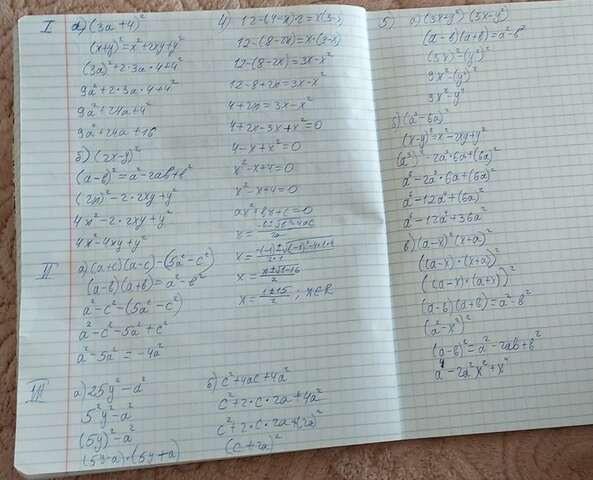 I а) (3a+4)²
(x+y)²=x²+2xy+y²
(3a)²+2·3a·4+4²
9a²+2·3a·4+4²
9a²+24a+4²
9a²+24a+16
б) (2x-y)²
(a-b)²=a²-2ab+b²
(2x)²-2·2xy+y²
4x²-2·2xy+y²
4x²-4xy+y²
II а) (a+c)(a-c)-(5a²-c²)
(a-b)(a+b)=a²-b²
a²-c²-(5a²-c²)
a²-c²-5a²+c²
a²-5a²=-4a²
III а) 25y²-a²
5²y²-a²
(5y)²-a²
(5y-a)·(5y+a)
б) c²+4ac+4a²
c²+2·c·2a+4a²
c²+2·c·2a+(2a)²
(c+2a)²
4) 12-(4-x)2=x(3-x)
12-(8-2x)=x·(3-x)
12-(8-2x)=3x-x²
12-8+2x=3x-x²
4+2x=3x-x²
4+2x-3x+x²=0
4-x+x²=0
x²-x+4=0
x²-x+4=0
ax²+bx+c=0
5) а) (3x+y²)(3x-y²)
(a-b)(a+b)=a²-b²
(3x)²-(y²)²
9x²-(y²)²
б) (a³-6a)²
(x-y)²=x²-2xy+y²
(a³)²-2a³·6a+(6a)²
a⁶-2a³·6a+(6a)²
a⁶-12a⁴+(6a)²
a⁶-12a⁴+36a²
в) (a-x)²(x+a)²
((a-x)·(x+a))²
((a-x)·(a+x))²
(a-b)(a+b)=a²-b²
(a²-x²)²
(a-b)²=a²-2ab+b²
a⁴-2a²x²+x⁴